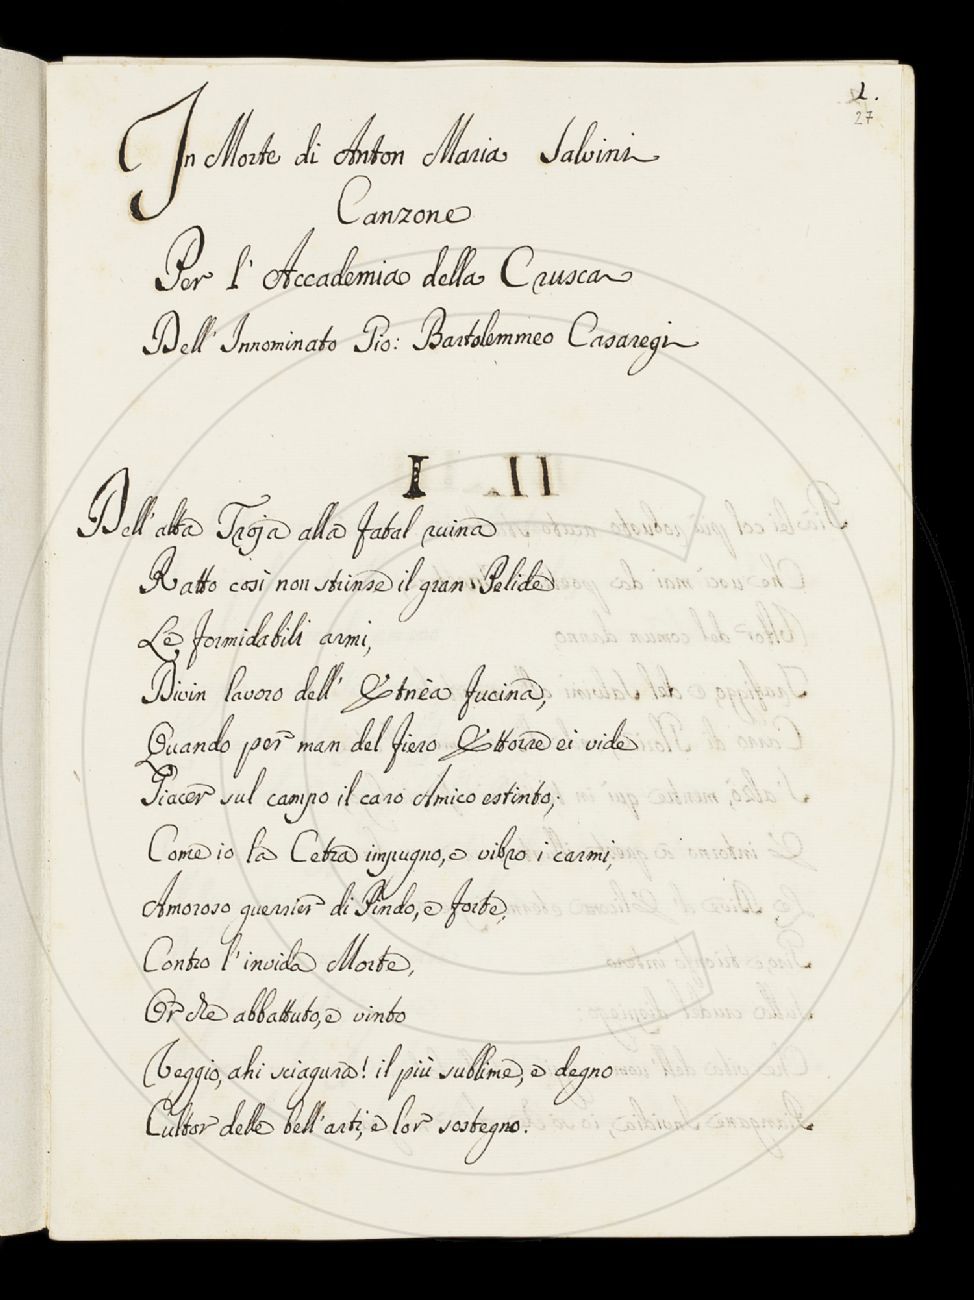 1.
27
In Morte di Anton Maria Salvini
Canzone
Per l' Accademia della Crusca
Dell' Innominato Gio: Bartolemmeo Casaregi
I
Dell' alta Troja alla fatal ruina
Ratto così non strinse il gran Pelide
Le formidabili armi,
Divin lavoro dell' Etnèa fucina,
Quando per man del fiero Ettorre ei vide
Giacer sul campo il caro Amico estinto;
Come io la Cetra impugno, e vibro i carmi,
Amoroso guerrier di Pindo, e forte,
Contro l' invida Morte,
Or che abbattuto, e vinto
Veggio, ahi sciagura! il più sublime, e degno
Cultor delle bell' arti, e lor sostegno.